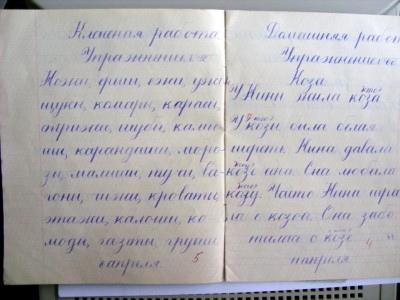 Классная работа
Упражнение
Ножи, ерши, ежи, ужи
щуки, комары, караси,
стрижи, шубы, камы-
ши, карандаши, моржи
малыши,
гони, кровати,
этажи, калоши, ко-
моды, газеты, груши
апреля. 5
Домашняя работ
Упражнение
Коза.
кто?
У Нины жила коза
У козы была белая
шерсть. Нина давала
козе она. Она любила
козу. Часто Нина игра
ла с козой. Она забо
тилась о козе 4
апреля